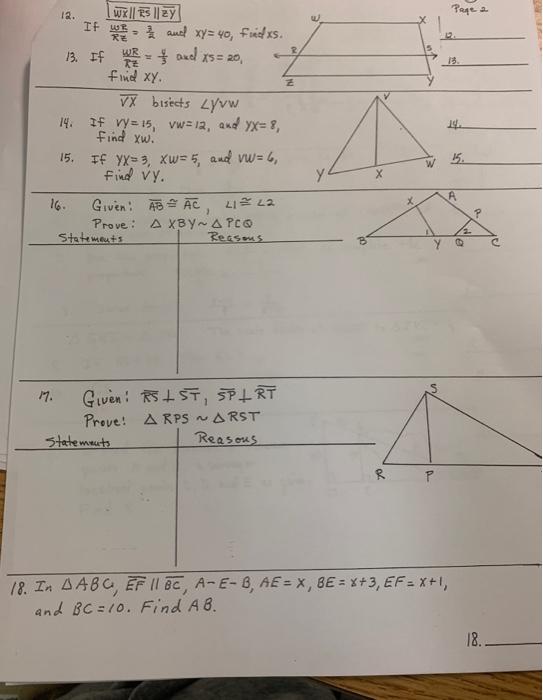 Page 2
12. WX || RS || ZY
If WR/RZ = 3/2 and XY = 40, find XS.
12.
13. If WR/RZ = 4/3 and XS = 20,
find XY.
13.
W X R S Z Y
VX bisects ∠YVW
14. If VY = 15, VW = 12, and YX = 8,
find XW.
14.
15. If YX = 3, XW = 5, and VW = 6,
find VY.
15.
V Y X W
16. Given: AB ≅ AC, ∠1 ≅ ∠2
Prove: △XBY ~ △PCQ
Statements Reasons
A X P B 1 2 Y Q C
17. Given: RS ⊥ ST, SP ⊥ RT
Prove: △RPS ~ △RST
Statements Reasons
S R P
18. In △ABC, EF || BC, A-E-B, AE = x, BE = x+3, EF = x+1,
and BC = 10. Find AB.
18.